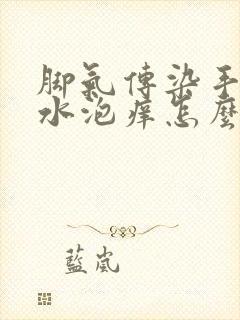 脚氣傳染手
水泡痒怎麽
藍嵐